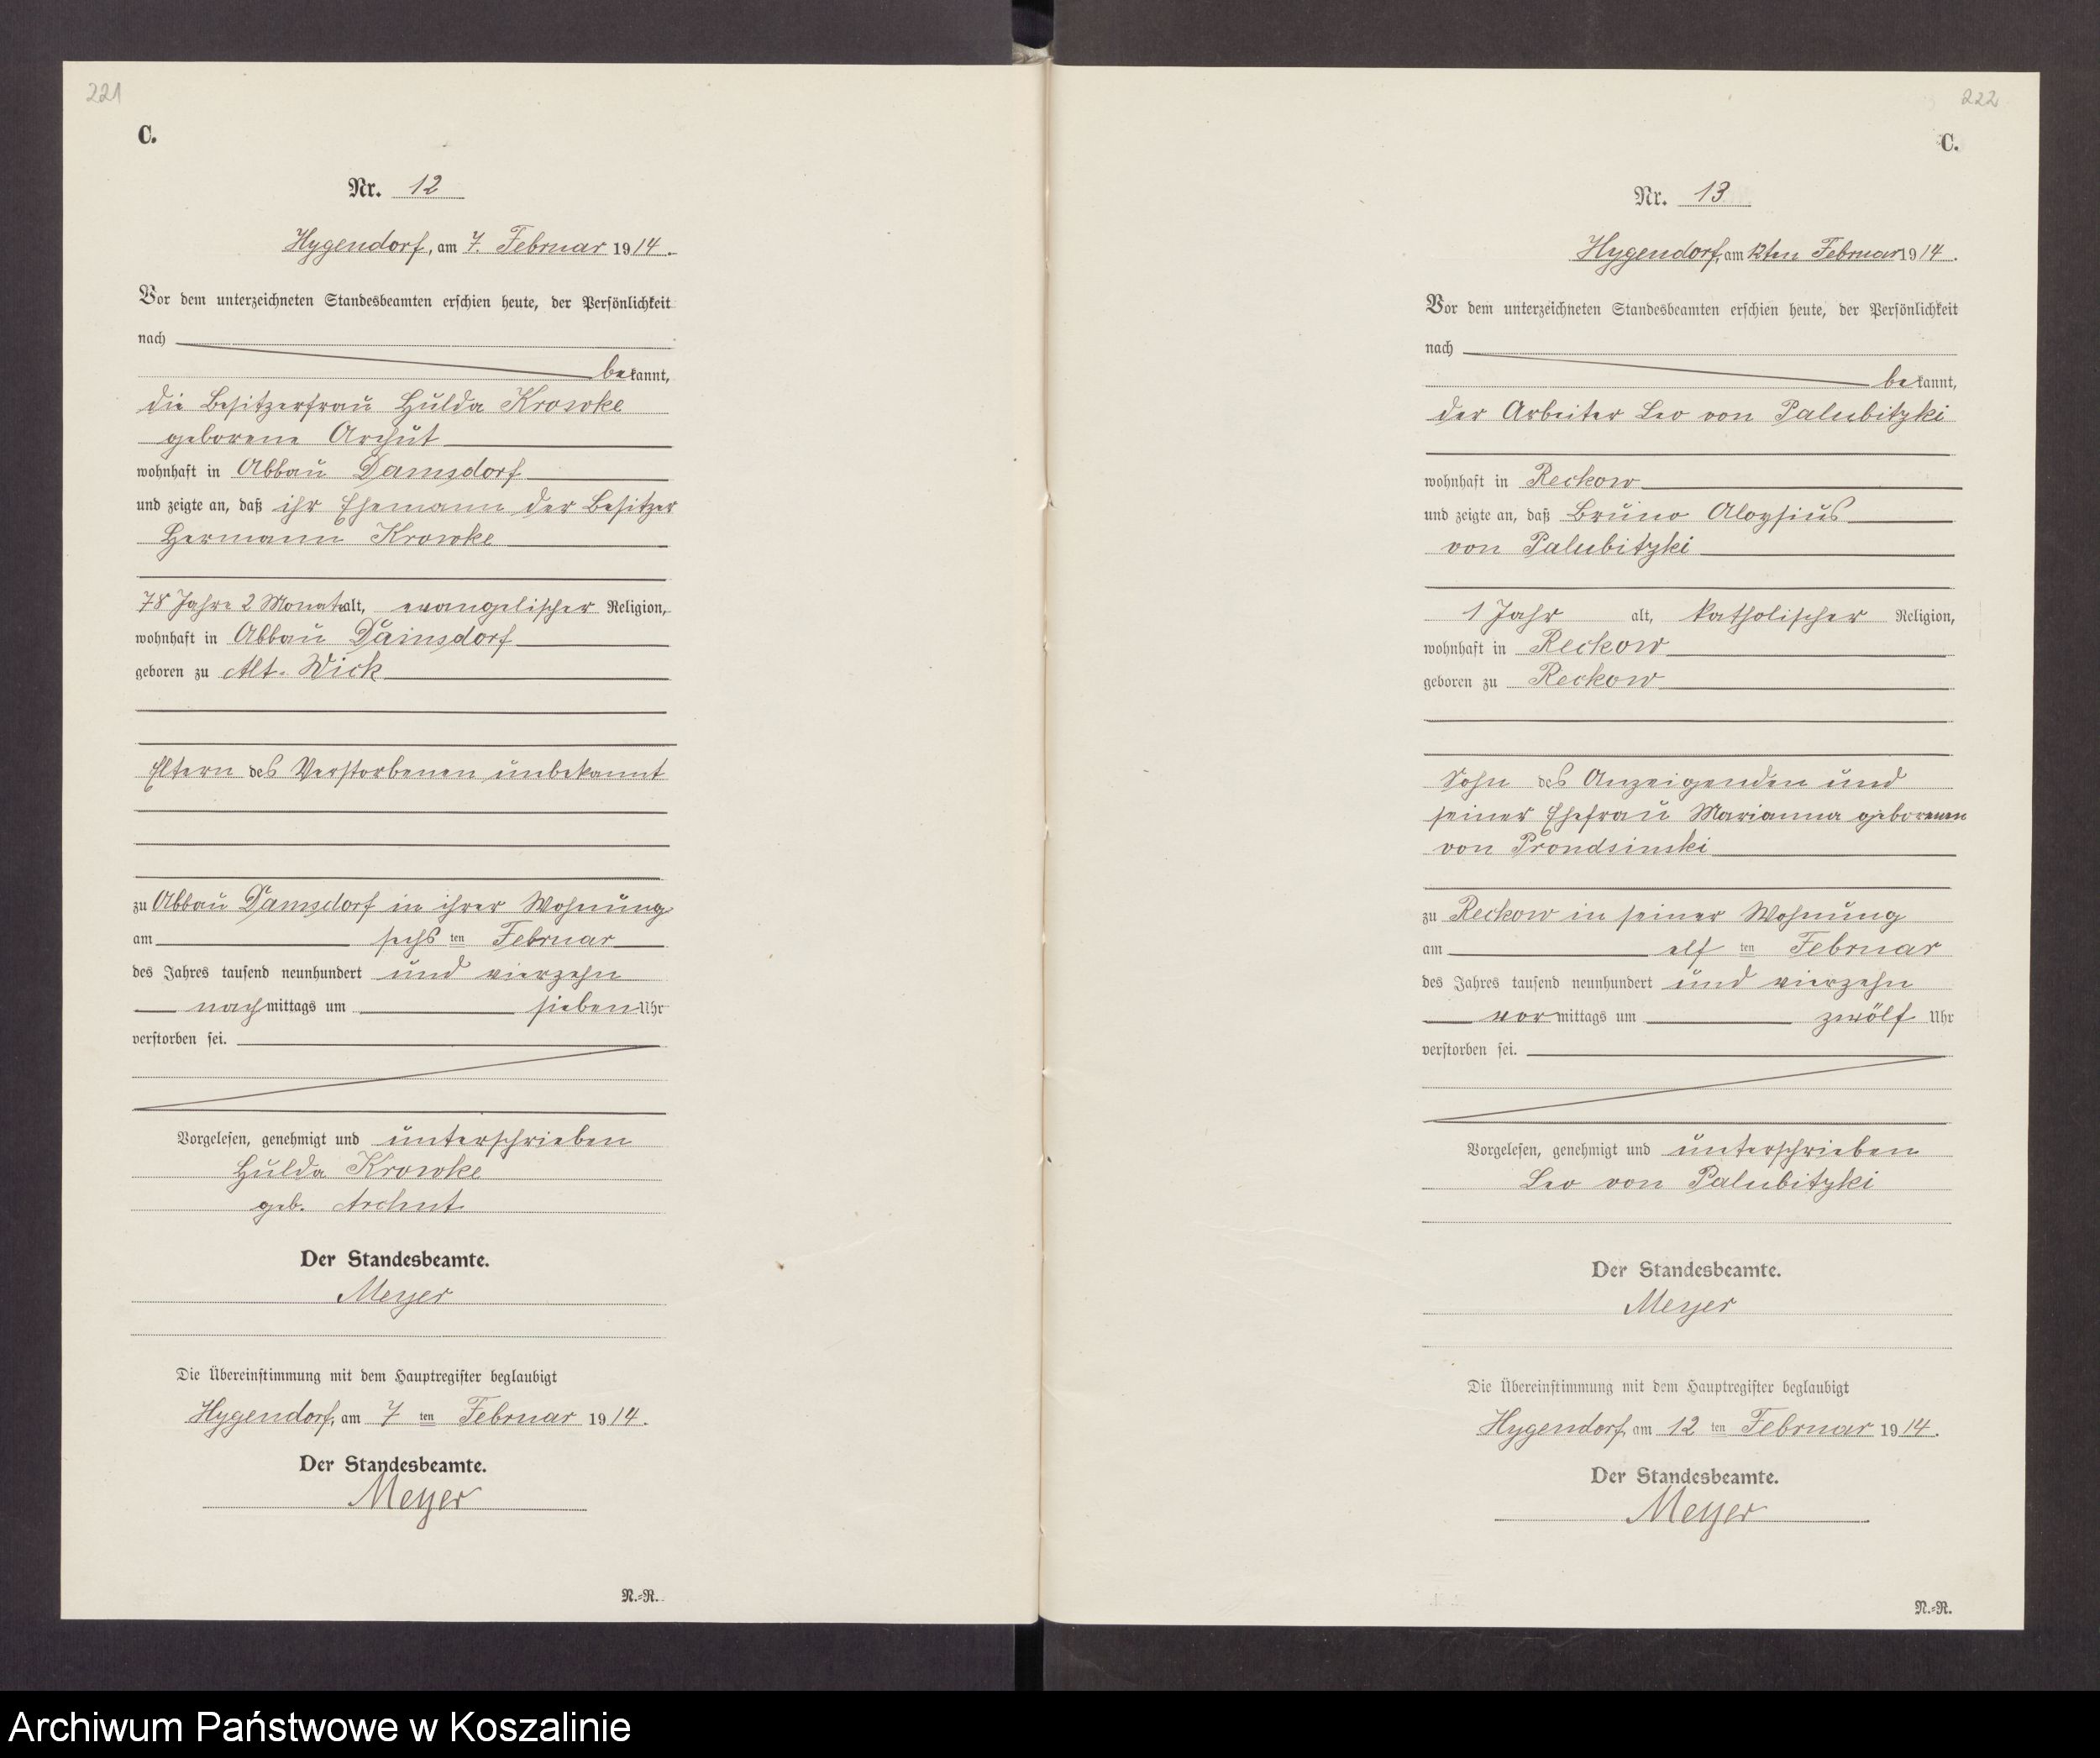 221
C.
Nr. 12
Hygendorf, am 7. Februar 1914.
Vor dem unterzeichneten Standesbeamten erschien heute, der Persönlichkeit
nach
bekannt,
die Besitzerfrau Hulda Krowke
geborene Archut
wohnhaft in Abbau Damsdorf
und zeigte an, daß ihr Ehemann der Besitzer
Hermann Krowke
78 Jahre 2 Monate alt, evangelischer Religion,
wohnhaft in Abbau Damsdorf
geboren zu Alt. Wick
Eltern des Verstorbenen unbekannt
zu Abbau Damsdorf in ihrer Wohnung
am sechs ten Februar
des Jahres tausend neunhundert und vierzehn
nachmittags um sieben Uhr
verstorben sei.
Vorgelesen, genehmigt und unterschrieben
Hulda Krowke
geb. Archut
Der Standesbeamte.
Meyer
Die Übereinstimmung mit dem Hauptregister beglaubigt
Hygendorf, am 7 ten Februar 1914.
Der Standesbeamte.
Meyer
N.=R.
222
C.
Nr. 13
Hygendorf, am 12ten Februar 1914.
Vor dem unterzeichneten Standesbeamten erschien heute, der Persönlichkeit
nach
bekannt,
der Arbeiter Leo von Palubitzki
wohnhaft in Reckow
und zeigte an, daß Bruno Aloysius
von Palubitzki
1 Jahr alt, katholischer Religion,
wohnhaft in Reckow
geboren zu Reckow
Sohn des Anzeigenden und
seiner Ehefrau Marianna geborenen
von Prondsinski
zu Reckow in seiner Wohnung
am elf ten Februar
des Jahres tausend neunhundert und vierzehn
vormittags um zwölf Uhr
verstorben sei.
Vorgelesen, genehmigt und unterschrieben
Leo von Palubitzki
Der Standesbeamte.
Meyer
Die Übereinstimmung mit dem Hauptregister beglaubigt
Hygendorf, am 12 ten Februar 1914.
Der Standesbeamte.
Meyer
N.=R.
Archiwum Państwowe w Koszalinie